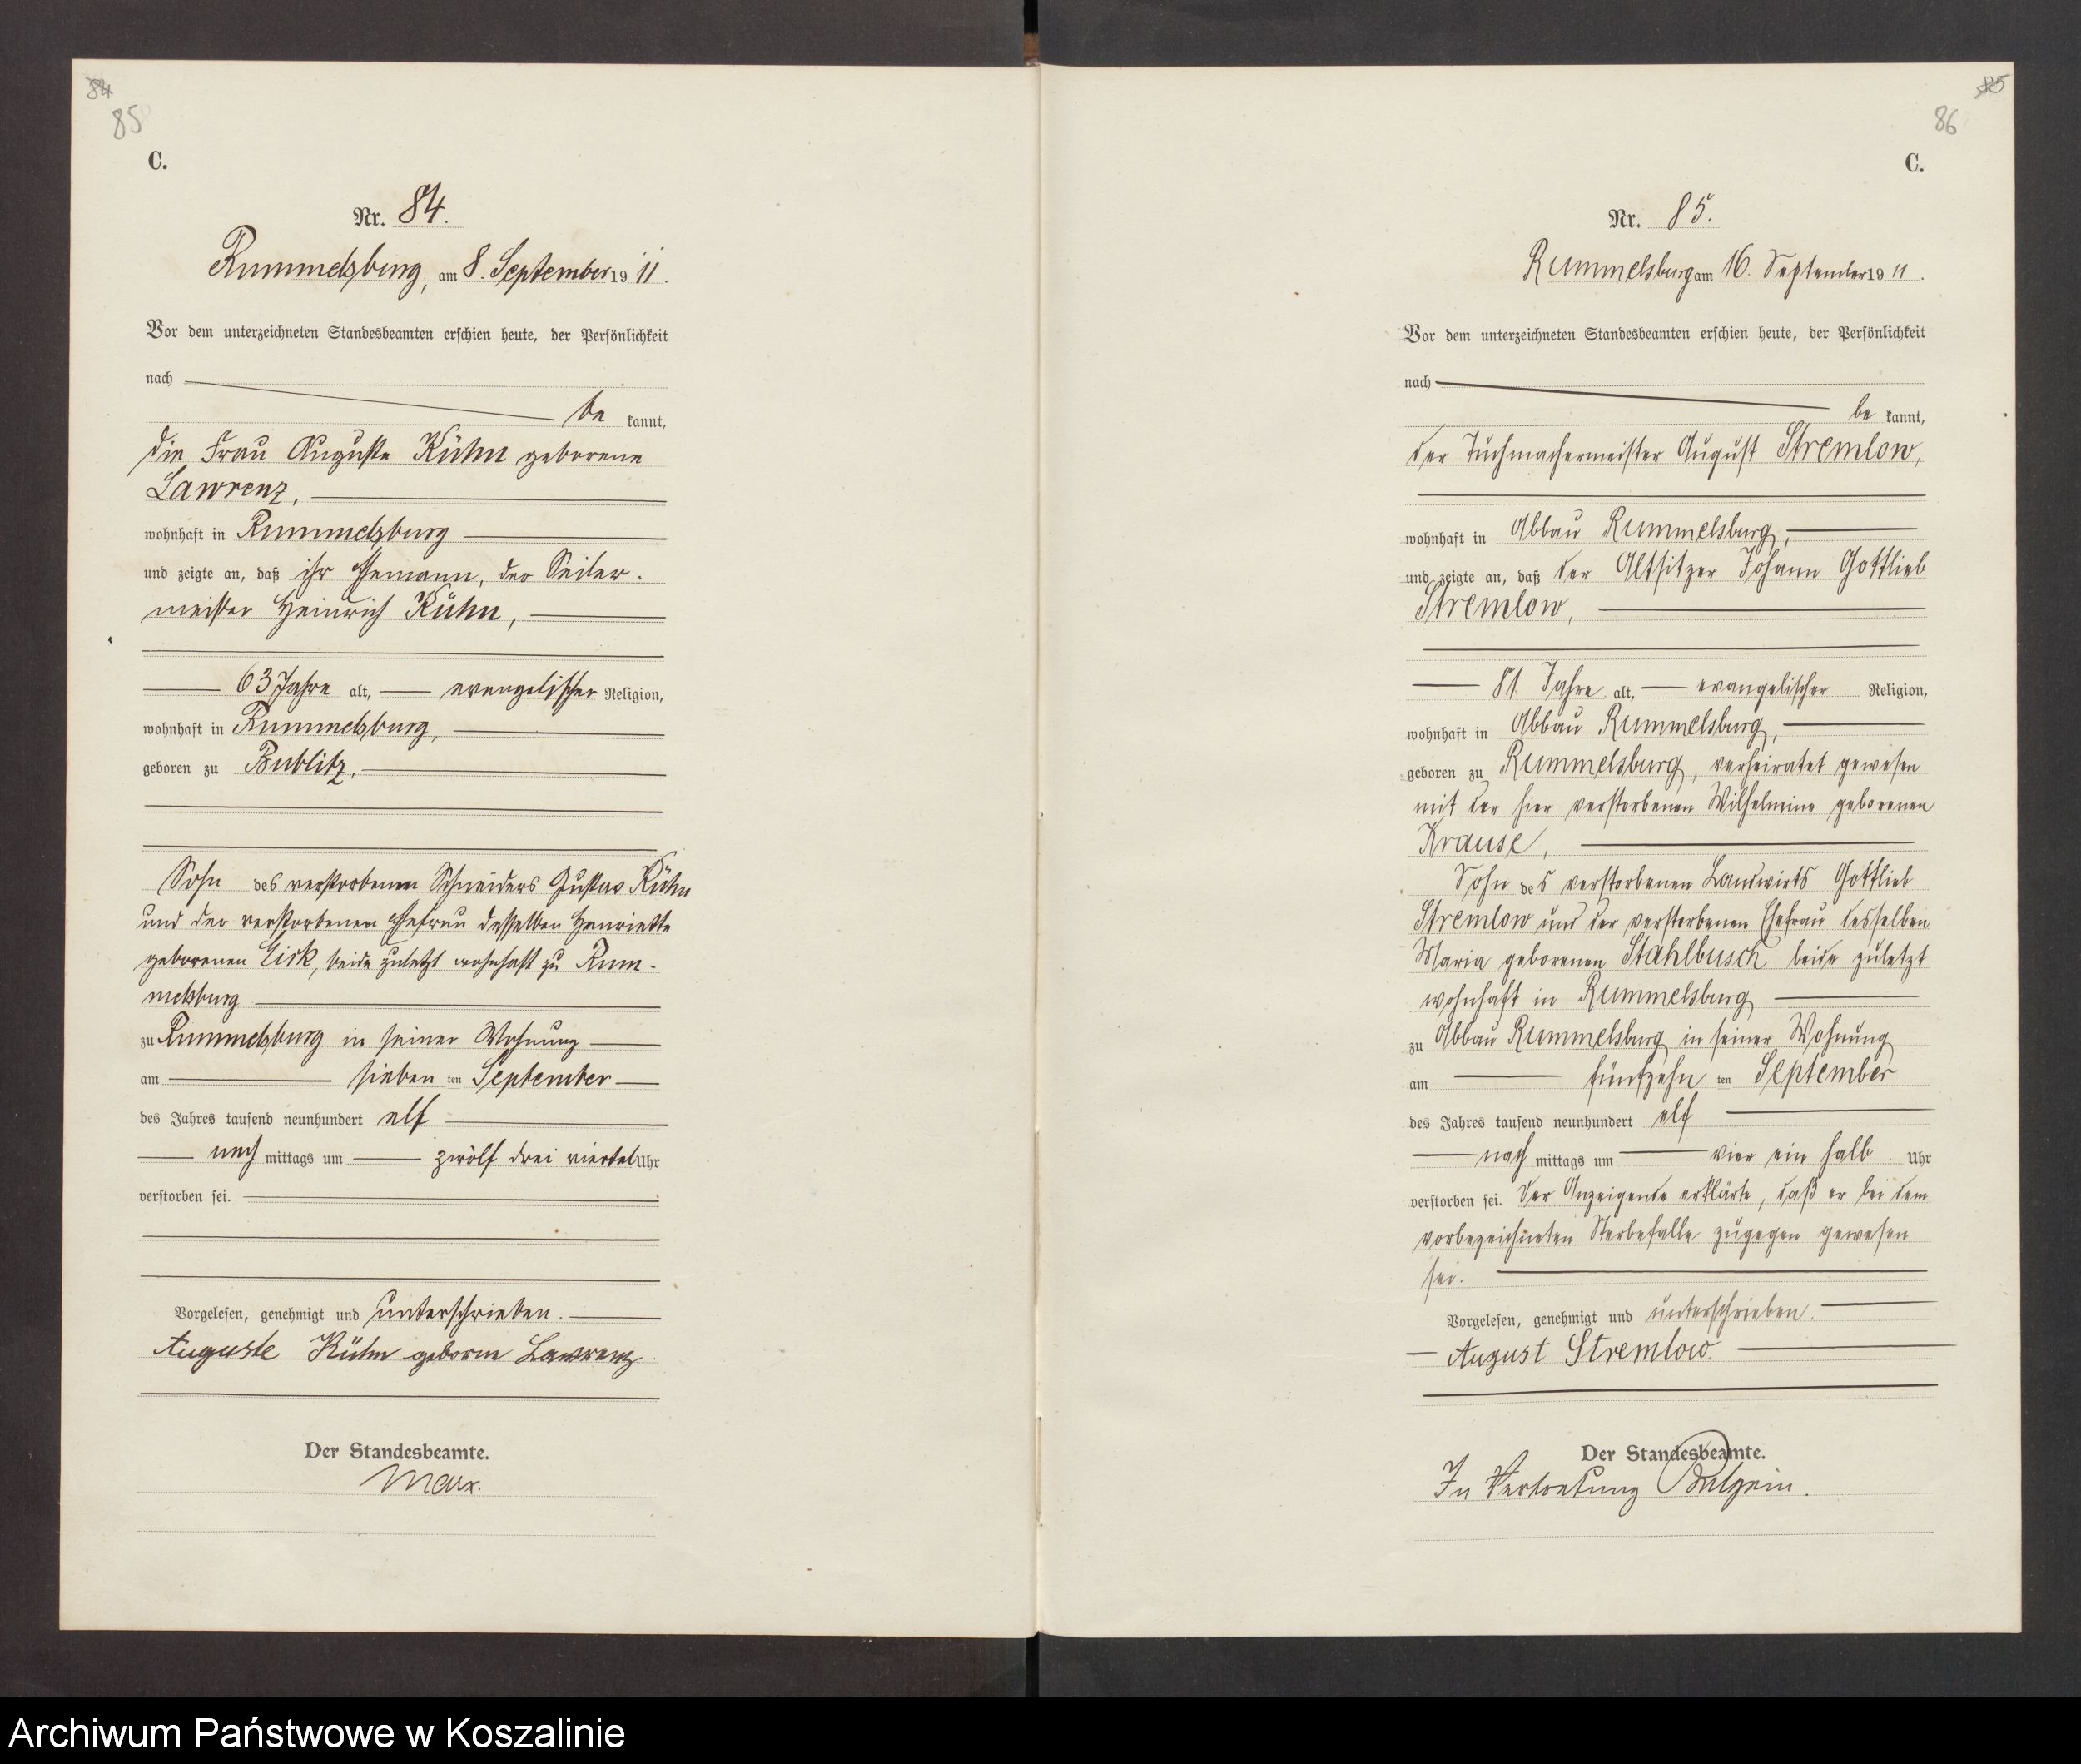 84
85
C.
Nr. 84.
Rummelsburg, am 8. September 1911.
Vor dem unterzeichneten Standesbeamten erschien heute, der Persönlichkeit
nach
be kannt,
die Frau Auguste Kühn geborene
Lawrenz,
wohnhaft in Rummelsburg
und zeigte an, daß ihr Ehemann, der Seiler-
meister Heinrich Kühn,
63 Jahre alt, evangelischer Religion,
wohnhaft in Rummelsburg,
geboren zu Bublitz,
Sohn des verstorbenen Schneiders Gustav Kühn
und der verstorbenen Ehefrau desselben Henriette
geborenen, beide zuletzt wohnhaft zu Rum-
melsburg
zu Rummelsburg in seiner Wohnung
am sieben ten September
des Jahres tausend neunhundert elf
nach mittags um zwölf drei viertel Uhr
verstorben sei.
Vorgelesen, genehmigt und unterschrieben.
Auguste Kühn geborne Lawrenz
Der Standesbeamte.
Marx.
85
86
C.
Nr. 85.
Rummelsburg am 16. September 1911.
Vor dem unterzeichneten Standesbeamten erschien heute, der Persönlichkeit
nach
be kannt,
der Tuchmachermeister August Stremlow,
wohnhaft in Abbau Rummelsburg,
und zeigte an, daß der Altsitzer Johann Gottlieb
Stremlow,
81 Jahre alt, evangelischer Religion,
wohnhaft in Abbau Rummelsburg,
geboren zu Rummelsburg, verheiratet gewesen
mit der hier verstorbenen Wilhelmine geborenen
Krause,
Sohn des verstorbenen Landwirts Gottlieb
Stremlow und der verstorbenen Ehefrau desselben
Maria geborenen Stahlbusch beide zuletzt
wohnhaft in Rummelsburg
zu Abbau Rummelsburg in seiner Wohnung
am fünfzehn ten September
des Jahres tausend neunhundert elf
nach mittags um vier ein halb Uhr
verstorben sei. Der Anzeigende erklärte, daß er bei dem
vorbezeichneten Sterbefalle zugegen gewesen
sei.
Vorgelesen, genehmigt und unterschrieben.
August Stremlow.
Der Standesbeamte.
In Vertretung
Archiwum Państwowe w Koszalinie